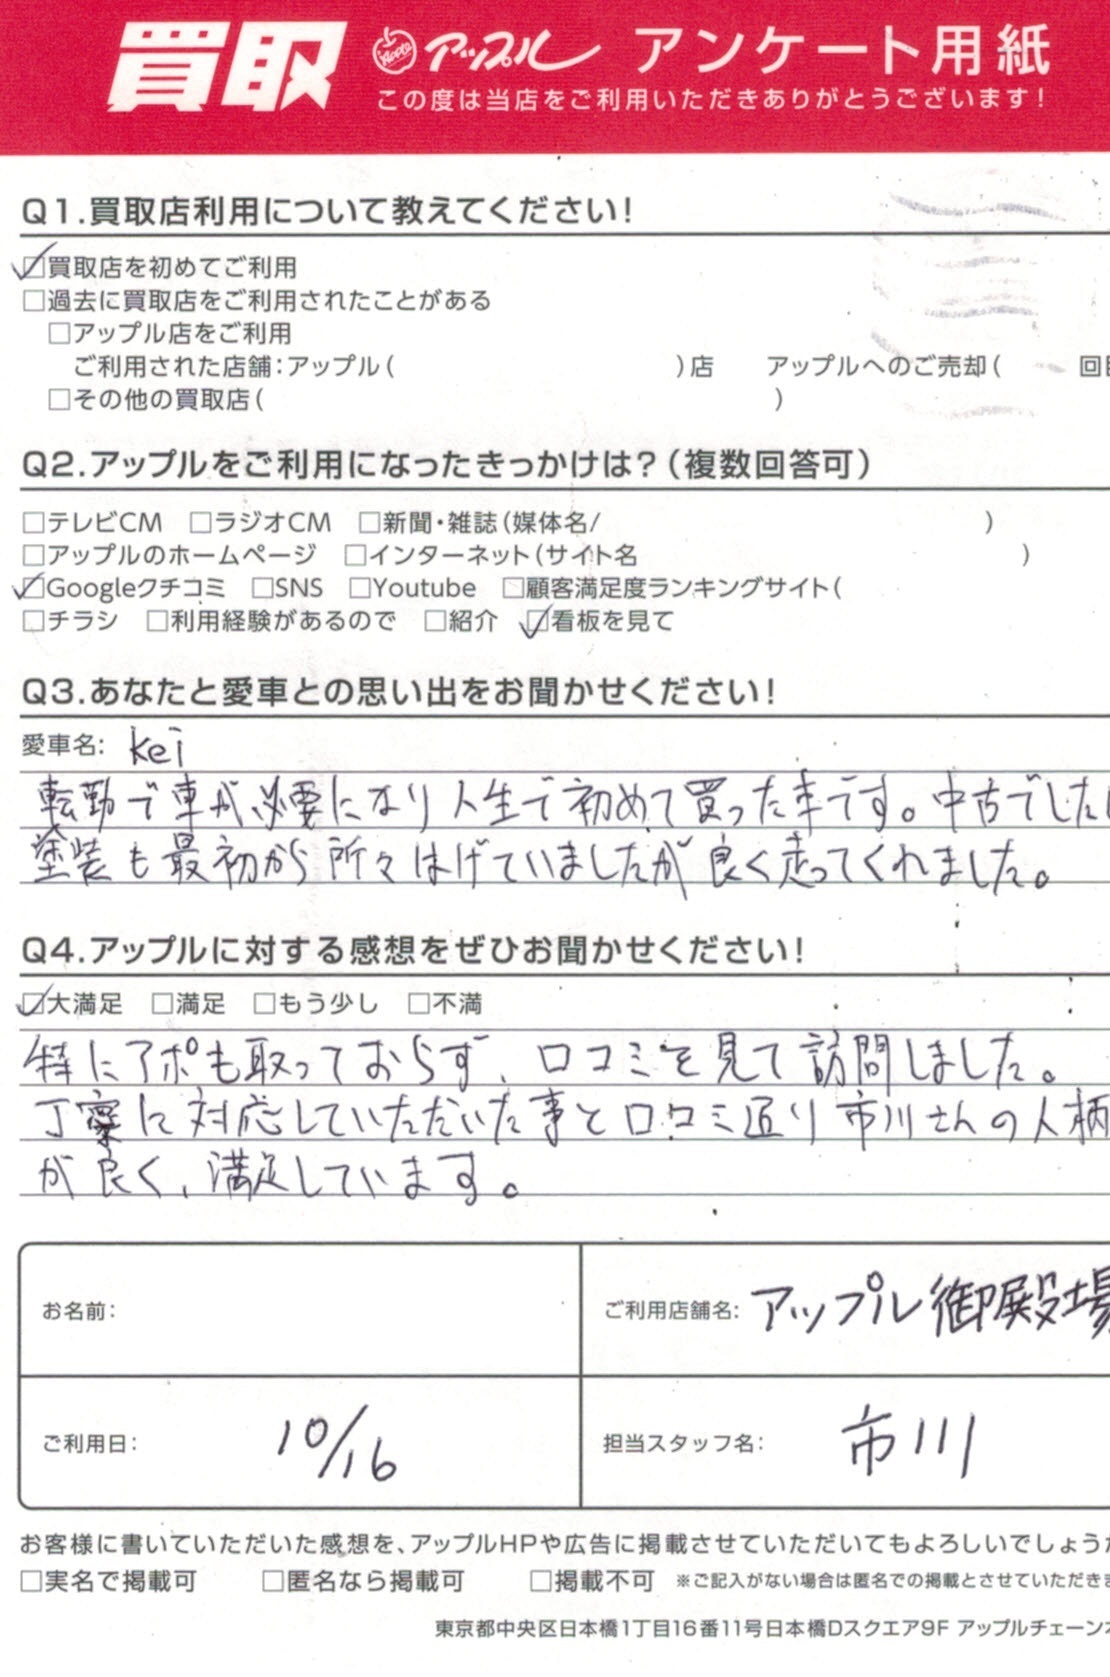 買取 Apple アップル アンケート用紙
この度は当店をご利用いただきありがとうございます!
Q1.買取店利用について教えてください!
☑買取店を初めてご利用
□過去に買取店をご利用されたことがある
□アップル店をご利用
ご利用された店舗:アップル( )店 アップルへのご売却( 回目
□その他の買取店( )
Q2.アップルをご利用になったきっかけは?(複数回答可)
□テレビCM □ラジオCM □新聞・雑誌(媒体名/ )
□アップルのホームページ □インターネット(サイト名 )
☑Googleクチコミ □SNS □Youtube □顧客満足度ランキングサイト(
□チラシ □利用経験があるので □紹介 ☑看板を見て
Q3.あなたと愛車との思い出をお聞かせください!
愛車名: kei
転勤で車が必要になり人生で初めて買った車です。中古でした
塗装も最初から所々はげていましたが良く走ってくれました。
Q4.アップルに対する感想をぜひお聞かせください!
☑大満足 □満足 □もう少し □不満
特にアポも取っておらず、口コミを見て訪問しました。
丁寧に対応していただいた事と口コミ通り市川さんの人柄
が良く、満足しています。
お名前: ご利用店舗名: アップル御殿場
ご利用日: 10/16 担当スタッフ名: 市川
お客様に書いていただいた感想を、アップルHPや広告に掲載させていただいてもよろしいでしょうか
□実名で掲載可 □匿名なら掲載可 □掲載不可 ※ご記入がない場合は匿名での掲載とさせていただきま
東京都中央区日本橋1丁目16番11号日本橋Dスクエア9F アップルチェーン本